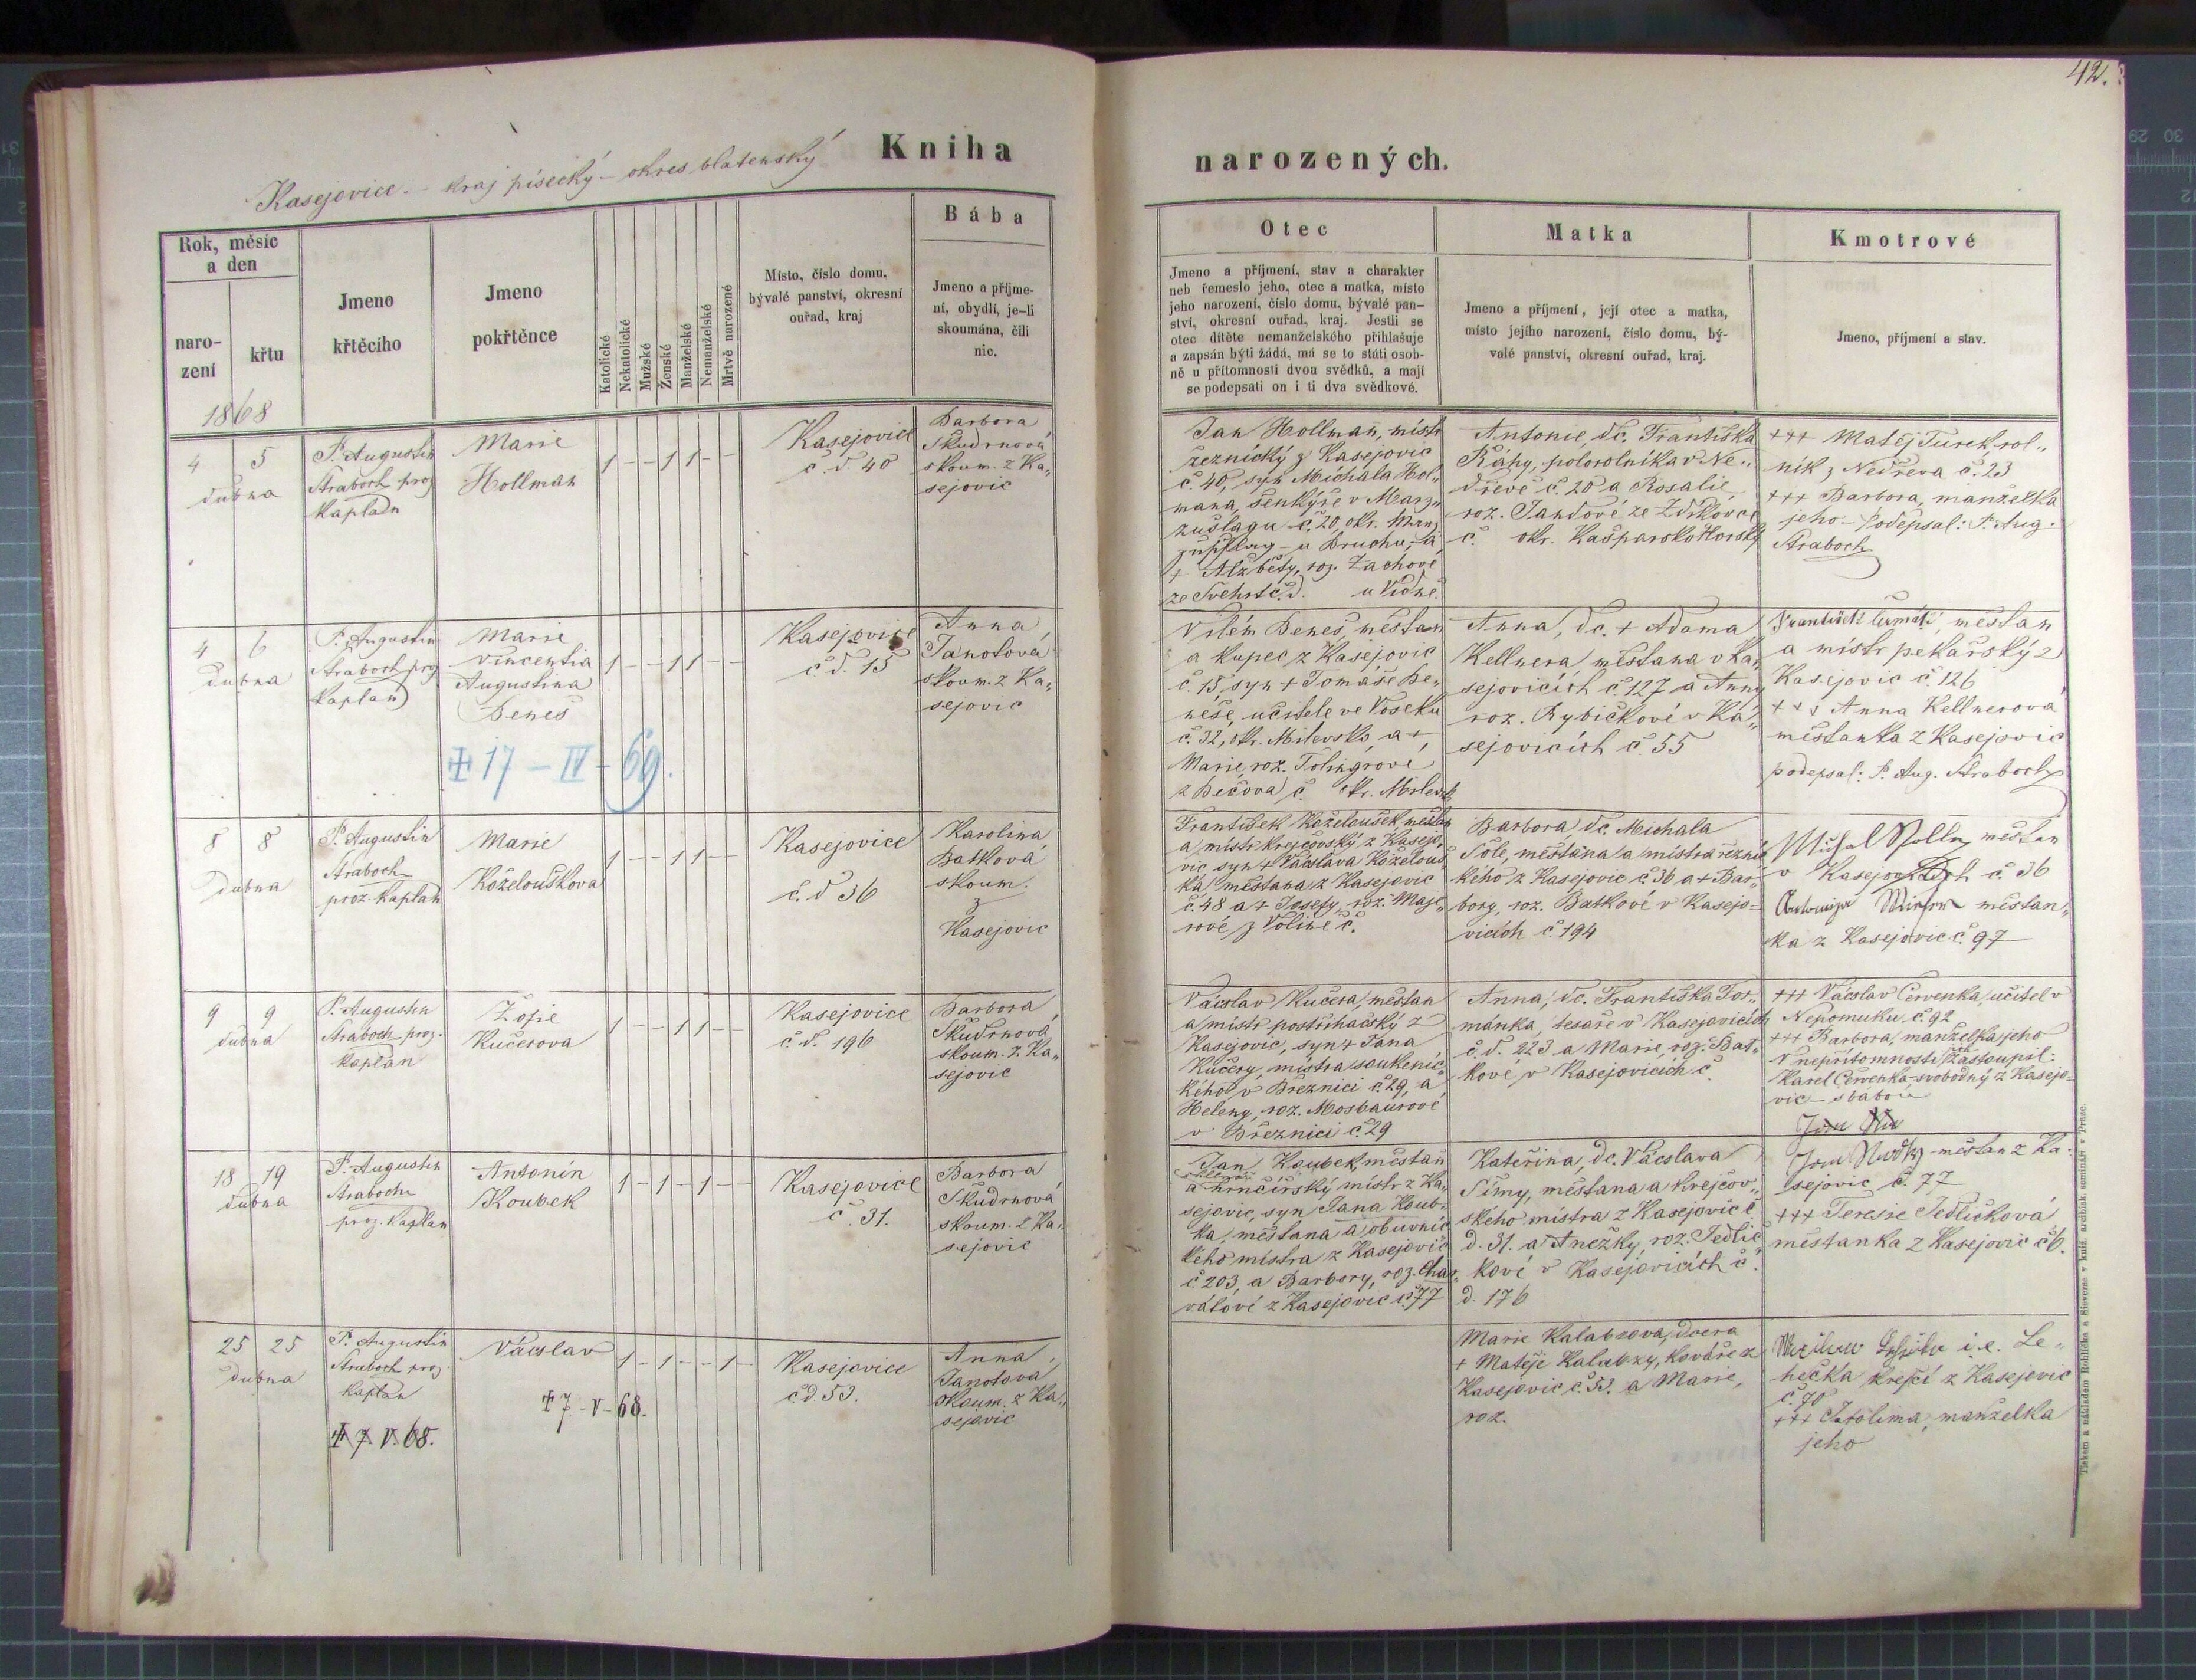 42.
Kasejovice – kraj písecký – okres blatenský
Kniha
narozených.
Rok, měsíc
a den
naro-
zení
křtu
1868
Jmeno
křtěcího
Jmeno
pokřtěnce
Katolické
Nekatolické
Mužské
Ženské
Manželské
Nemanželské
Mrtvě narozené
Místo, číslo domu,
bývalé panství, okresní
ouřad, kraj
Bába
Jmeno a příjme-
ní, obydlí, je-li
skoumána, čili
nic.
Otec
Jmeno a příjmení, stav a charakter
neb řemeslo jeho, otec a matka, místo
jeho narození, číslo domu, bývalé pan-
ství, okresní ouřad, kraj. Jestli se
otec dítěte nemanželského přihlašuje
a zapsán býti žádá, má se to státi osob-
ně u přítomnosti dvou svědků, a mají
se podepsati on i ti dva svědkové.
Matka
Jmeno a příjmení, její otec a matka,
místo jejího narození, číslo domu, bý-
valé panství, okresní ouřad, kraj.
Kmotrové
Jmeno, příjmení a stav.
4 5
dubna
P. Augustin
Straboch proz
kaplan
Marie
Hollman
1 – – 1 1 – –
Kasejovice
č. d 40
Barbora
Skudrnová
skoum. z Ka„
sejovic
Jan Hollman, mistr
řeznický z Kasejovic
č. 40, syn Michala Hol„
mana, šenkýře v Marz„
zuslagu č. 20, okr. Marz
zuschlag – u Bruchu, a
+ Alžběty, roz. Zachové
ze č. d. u Vídně.
Antonie, dc. Františka
Řáhy, polorolníka v Ne„
dřevě č. 20 a Rosalie
roz. Jandové ze Zdíkovce
č. okr. Kašparsko Horský
+++ Matěj Turek rol„
ník z Nedřeva č. 23
+++ Barbora, manželka
jeho – podepsal: P. Aug.
Straboch
4 6
dubna
P. Augustin
Straboch proz
kaplan
Marie
Vincentia
Augustina
Beneš
+ 17 – IV – 69.
1 – – 1 1 – –
Kasejovice
č d. 15
Anna
Janotová
skoum. z Ka„
sejovic
Vilém Beneš, měšťan
a kupec z Kasejovic
č. 15 syn + Tomáše Be„
neše, učitele ve Voseku
č. 32, okr. Milevsko, a +
Marie, roz. Tolingrové
z Bečova č. okr. Milevsk
Anna, dc. + Adama
Kellnera měšťana v Ka„
sejovicích č. 127 a Anny
roz. Rybičkové v Ka„
sejovicích č. 55
František Čermák, měšťan
a mistr pekařský z
Kasejovic č. 126
+++ Anna Kellnerová
měšťanka z Kasejovic
podepsal: P. Aug. Straboch
8 8
dubna
P. Augustin
Straboch
proz. kaplan
Marie
Koželoušková
1 – – 1 1 – –
Kasejovice
č. d 36
Karolina
Batková
skoum.
z
Kasejovic
František Koželoušek, měšťan
a mistr krejčovský z Kasejo„
vic syn + Václava Koželouš„
ka, měšťana z Kasejovic
č. 48 a + Josefy, roz. Maje„
rové z Volině č.
Barbora, dc. Michala
Šole, měšťana a mistra řeznic
kého z Kasejovic č. 36 a + Bar„
bory, roz. Batkové v Kasejo-
vicích č. 194
Michal měšťan
v Kasejovicích č. 36
měšťan„
ka z Kasejovic č. 97
9 9
dubna
P. Augustin
Straboch proz.
kaplan
Žofie
Kučerova
1 – – 1 1 – –
Kasejovice
č. d. 196
Barbora
Skudrnová
skoum. z Ka„
sejovic
Václav Kučera, měšťan
a mistr postřihačský z
Kasejovic, syn + Jana
Kučery, mistra soukenic„
kého v Březnici č. 29, a
Heleny, roz. Mosbaurové
v Březnici č. 29
Anna, dc. Františka For„
mánka, tesaře v Kasejovicích
č. d. 223 a Marie, roz. Bat„
kové v Kasejovicích č.
+++ Václav Červenka, učitel v
Nepomuku č. 92
+++ Barbora, manželka jeho
V nepřítomnosti zastoupil:
Karel Červenka, svobodný z Kasejo-
vic – s bábou
18 19
dubna
P. Augustin
Straboch
proz. kaplan
Antonín
Koubek
1 – 1 – 1 – –
Kasejovice
č. 31.
Barbora
Skudrnová
skoum. z Ka„
sejovic
Jan Koubek, měšťan
a hrnčířský mistr z Ka„
sejovic, syn Jana Koub„
ka, měšťana a obuvnic„
kého mistra z Kasejovic
č. 203, a Barbory, roz. Char„
vátové z Kasejovic č. 77
Kateřina, dc. Václava
Šímy, měšťana a krejčov„
ského mistra z Kasejovic č
d. 31. a Anežky, roz. Jedlič
kové v Kasejovicích č.
d. 176
měšťan z Ka„
sejovic č. 77
+++ Teresie Jedličková
měšťanka z Kasejovic č 6.
25 25
dubna
P. Augustin
Straboch proz.
kaplan
+ 7. V. 68.
Václav
+ 7. – V – 68.
1 – 1 – – 1 –
Kasejovice
č d. 53.
Anna
Janotová
skoum. z Ka„
sejovic
Marie Kalabzova, dcera
+ Matěje Kalabzy, kováře z
Kasejovic č. 53. a Marie,
roz.
i. e. Le„
hečka krejčí z Kasejovic
č. 70
+++ Karolina, manželka
jeho
Tiskem a nákladem Rohlíčka a Sieverse v kníž. arcibisk. semináři v Praze.